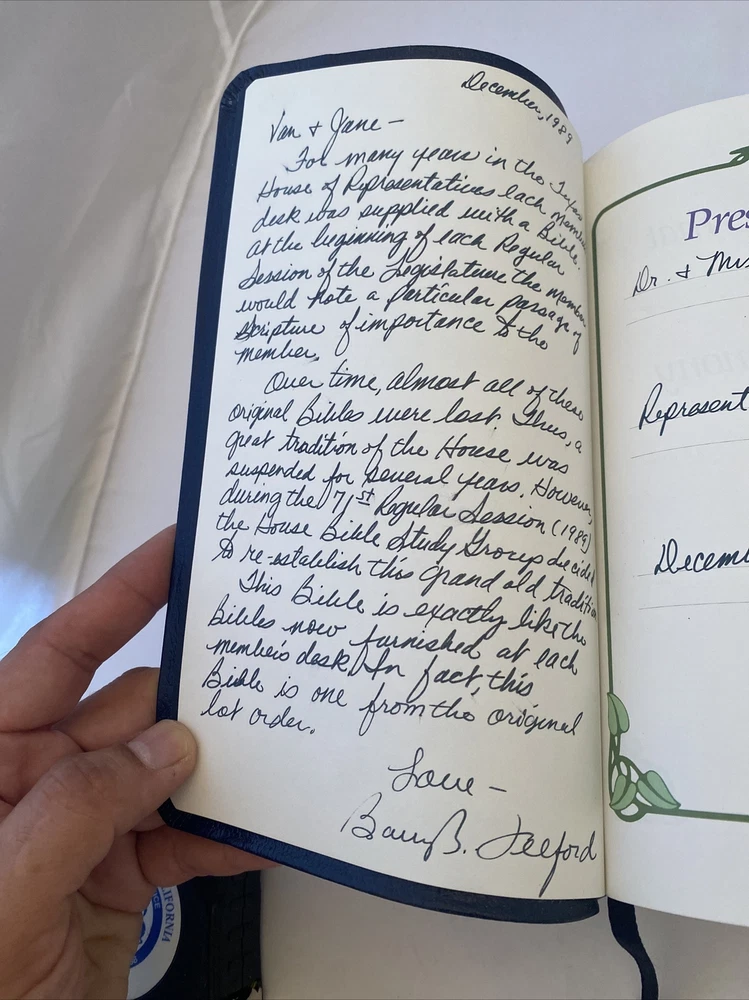 December, 1989
Van + Jane —
For many years in the Texas
House of Representatives each member
desk was supplied with a Bible.
At the beginning of each Regular
Session of the Legislature the member
would note a particular passage of
Scripture of importance to the
member.
Over time, almost all of these
original Bibles were lost. Thus, a
great tradition of the House was
suspended for several years. However,
during the 71st Regular Session (1989)
the House Bible Study Group decided
to re-establish this grand old tradition
This Bible is exactly like the
Bibles now furnished at each
member's desk. In fact, this
Bible is one from the original
lot order.
Love —
Barry B. Telford
Pres
Dr. + Mrs
Represent
Decem
IFORNIA